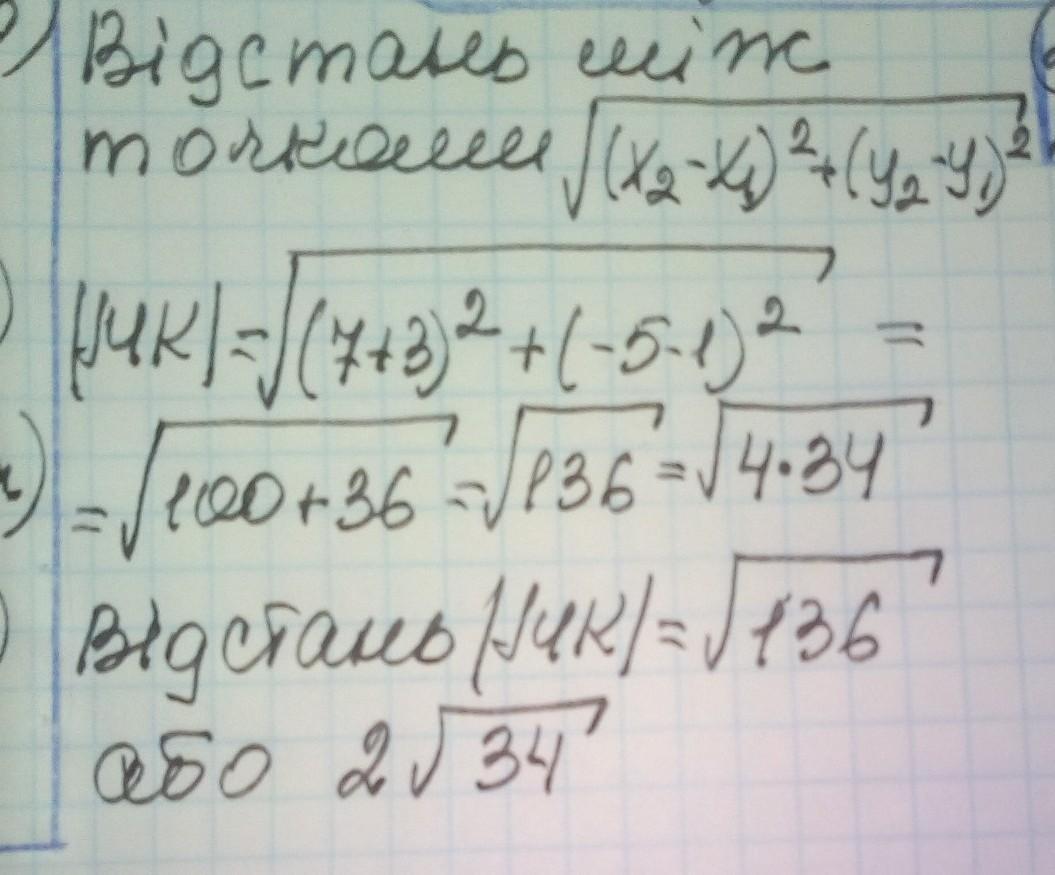 Відстань між
точками √(x₂-x₁)²+(y₂-y₁)²
|MK|=√(7+3)²+(-5-1)² =
=√100+36 =√136 =√4·34
Відстань |MK|=√136
або 2√34